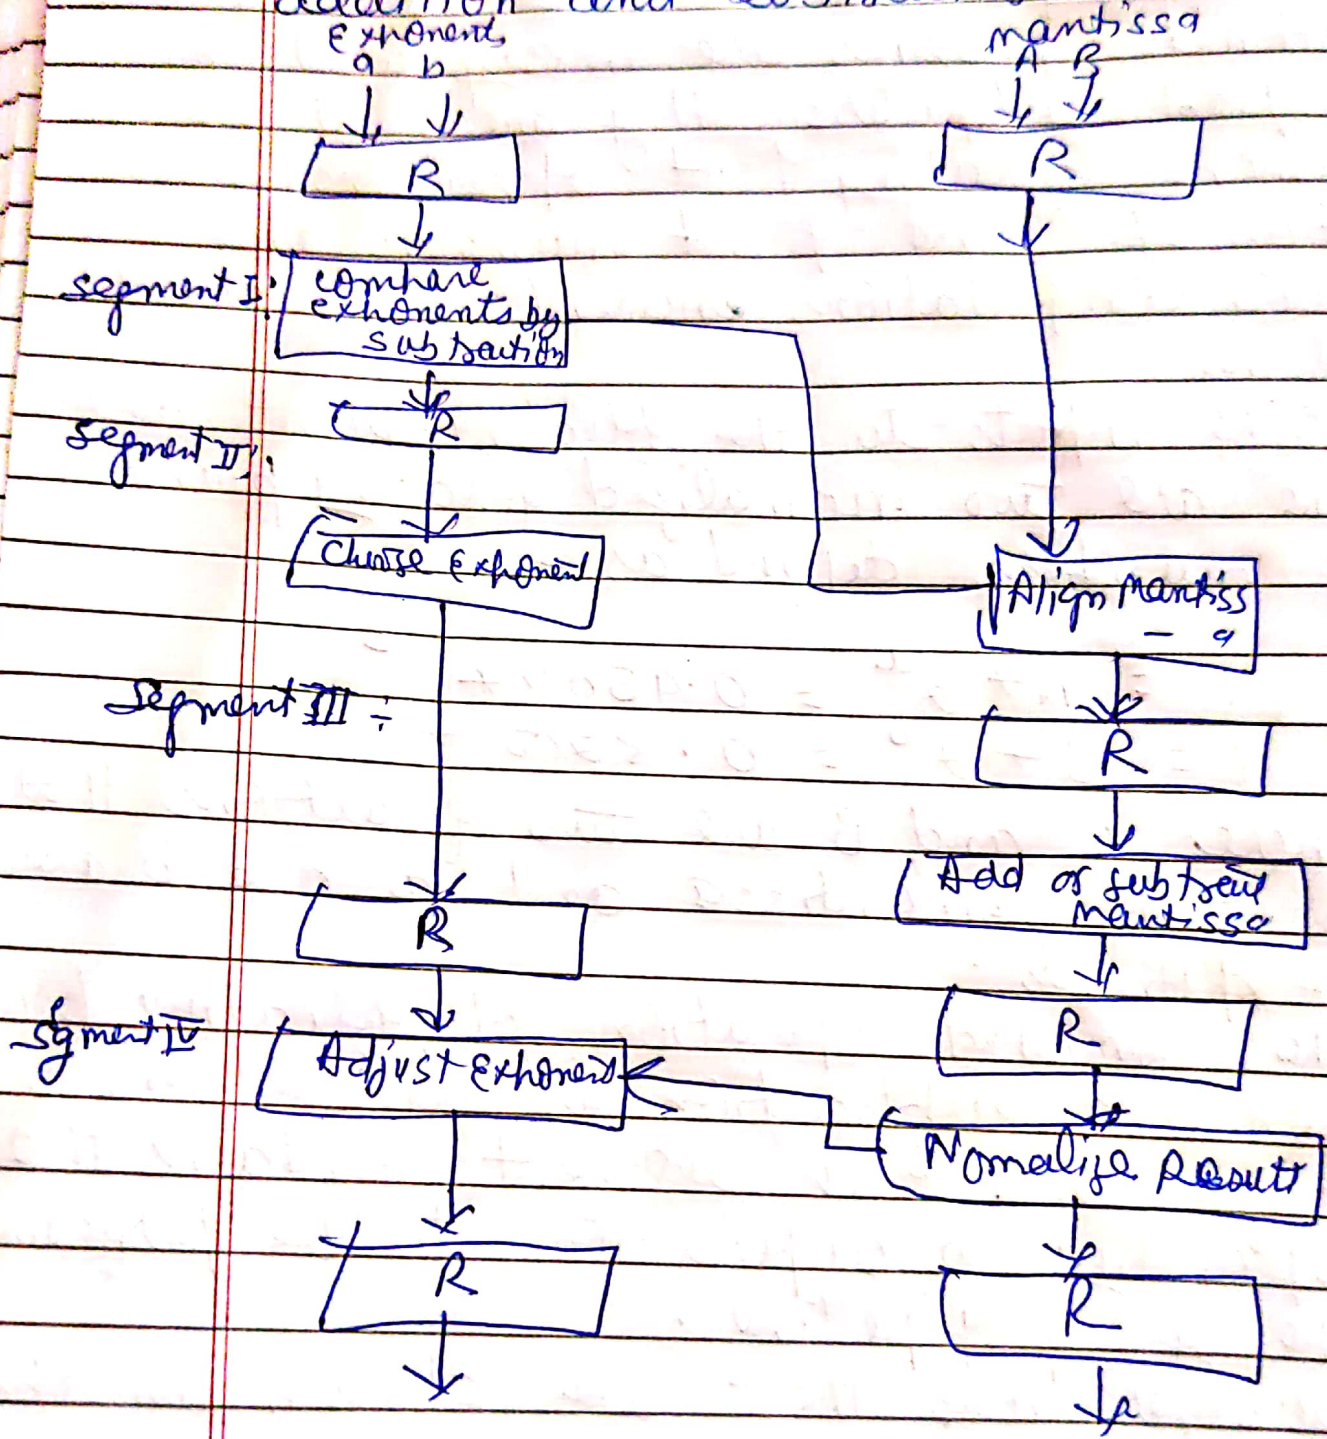 addition and
Exponents
a b
mantissa
A B
R
R
segment I:
compare
exponents by
subtraction
R
segment II:
Choose Exponent
Align Mantiss
- a
segment III :
R
Add or subtract
Mantissa
R
R
Sgment IV
Adjust Exponent
Nomalize Result
R
R